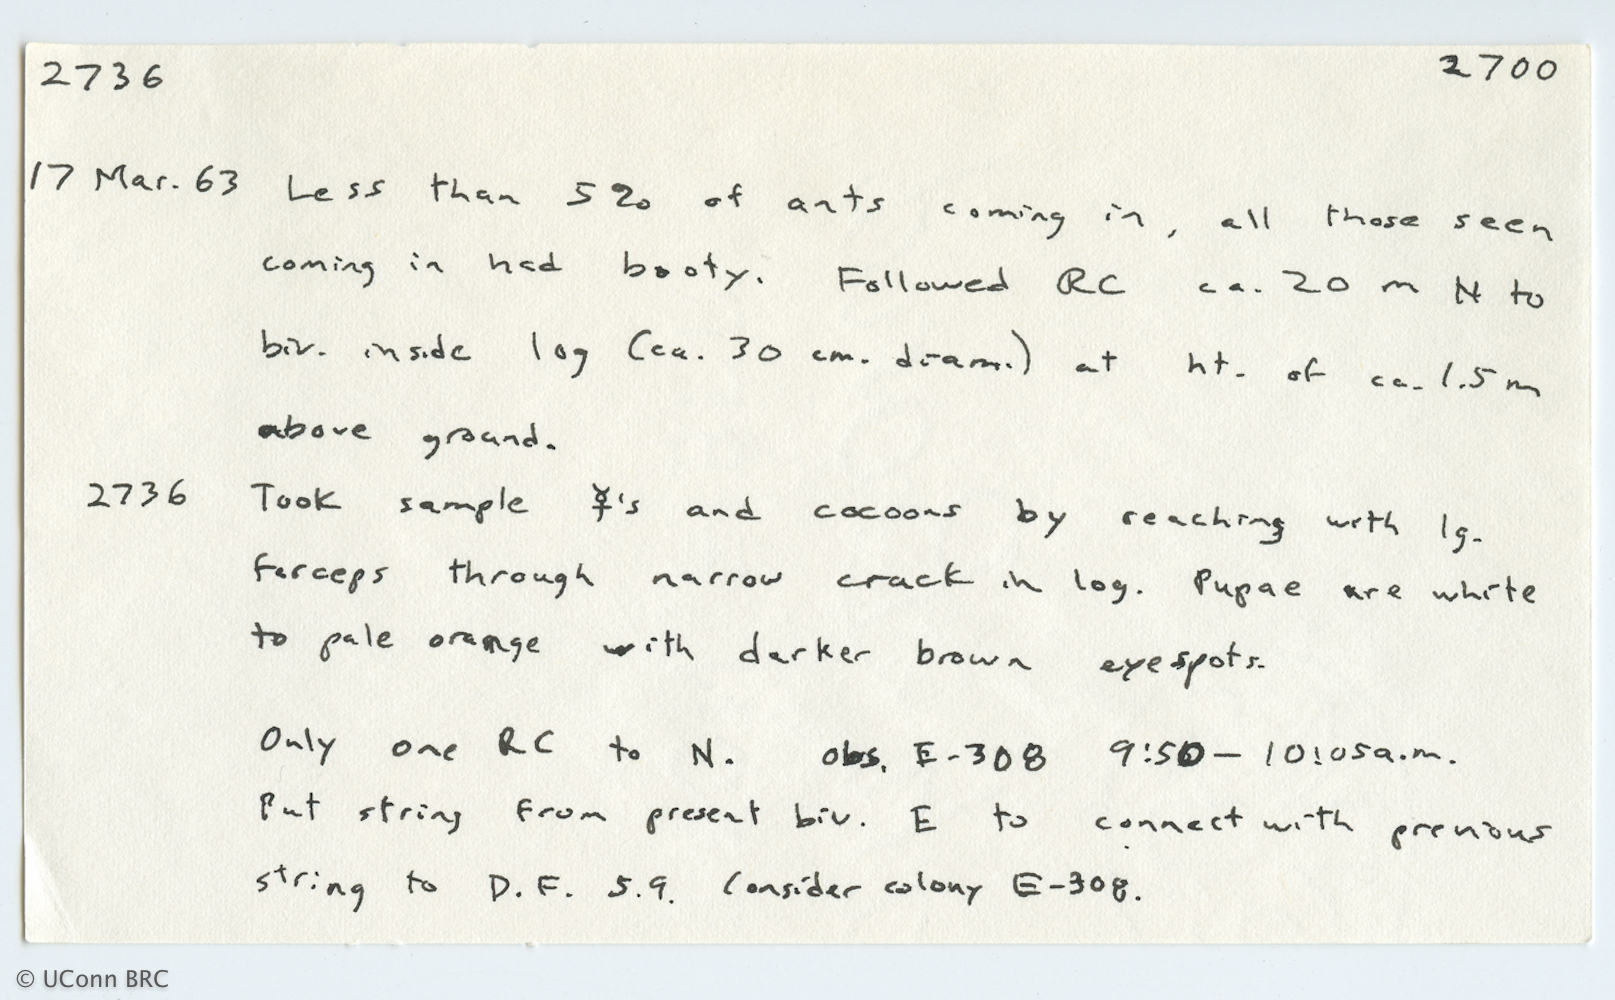 2736 2700
17 Mar. 63 Less than 5% of ants coming in, all those seen
coming in had booty. Followed RC ca. 20 m N to
biv. inside log (ca. 30 cm. diam.) at ht. of ca. 1.5 m
above ground.
2736 Took sample ☿'s and cocoons by reaching with lg.
forceps through narrow crack in log. Pupae are white
to pale orange with darker brown eyespots.
Only one RC to N. obs. E-308 9:50 – 10:05 a.m.
Put string from present biv. E to connect with previous
string to D.F. 5.9. Consider colony E-308.
© UConn BRC